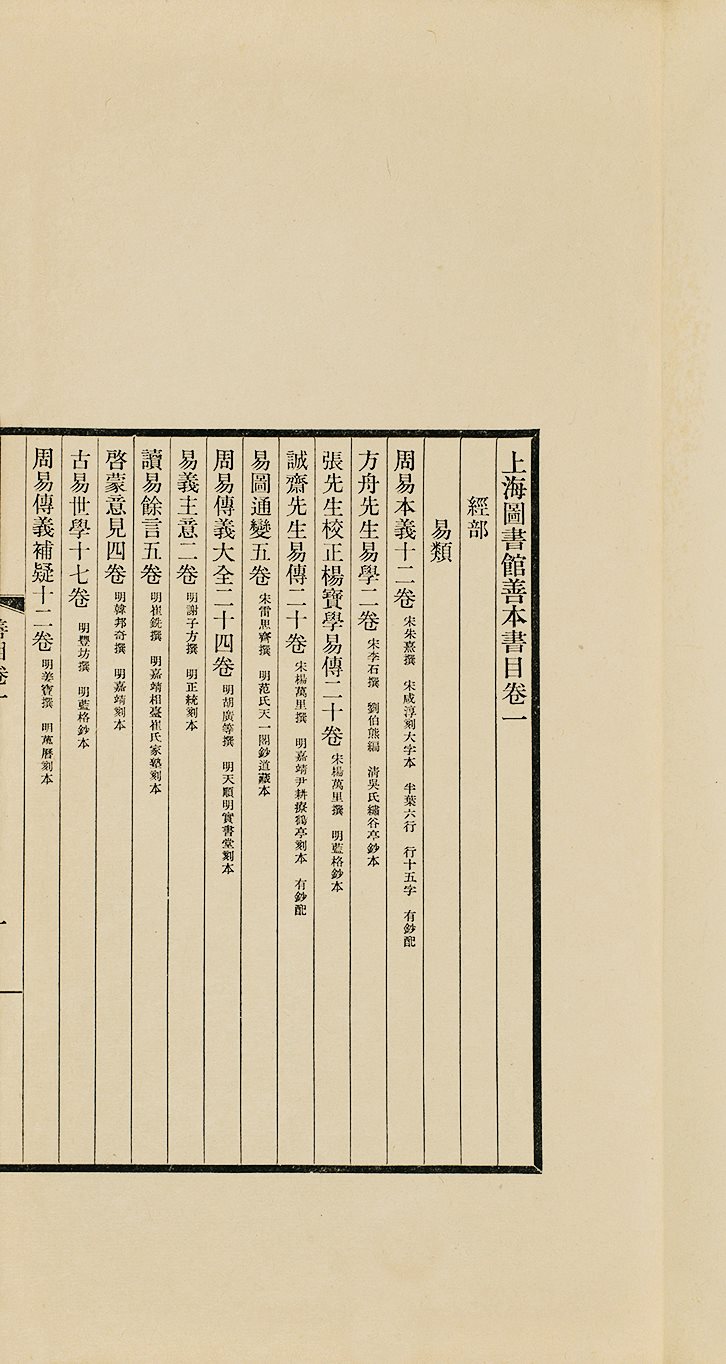 上海圖書館善本書目卷一
經部
易類
周易本義十二卷 宋朱熹撰 宋咸淳刻大字本 半葉六行 行十五字 有鈔配
方舟先生易學二卷 宋李石撰 劉伯熊編 清吳氏繡谷亭鈔本
張先生校正楊寶學易傳二十卷 宋楊萬里撰 明藍格鈔本
誠齋先生易傳二十卷 宋楊萬里撰 明嘉靖尹耕療鶴亭刻本 有鈔配
易圖通變五卷 宋雷思齊撰 明范氏天一閣鈔道藏本
周易傳義大全二十四卷 明胡廣等撰 明天順明實書堂刻本
易義主意二卷 明謝子方撰 明正統刻本
讀易餘言五卷 明崔銑撰 明嘉靖相臺崔氏家塾刻本
啓蒙意見四卷 明韓邦奇撰 明嘉靖刻本
古易世學十七卷 明豐坊撰 明藍格鈔本
周易傳義補疑十二卷 明姜寶撰 明萬曆刻本
善目卷一
一